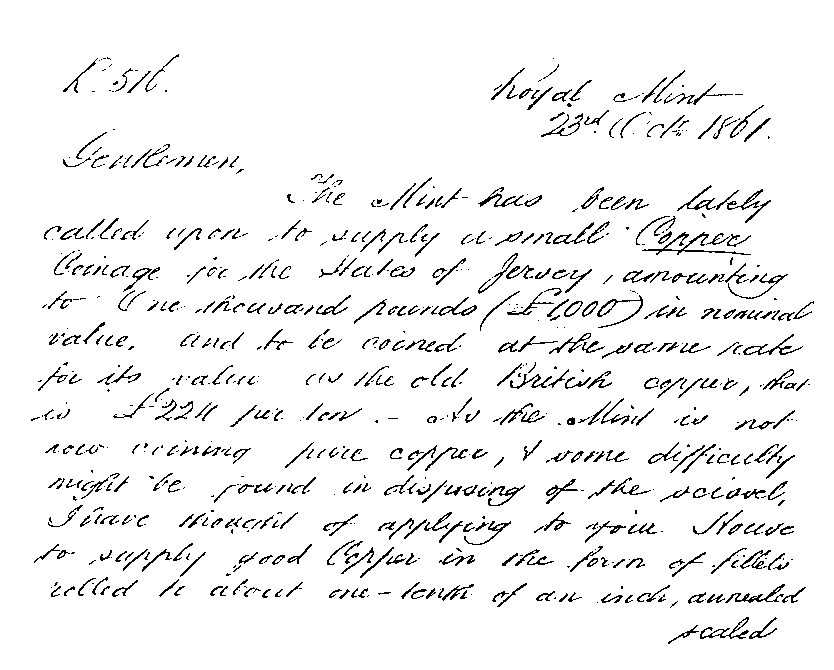 R. 516.
Royal Mint
23rd. Octr. 1861.
Gentlemen,
The Mint has been lately
called upon to supply a small Copper
Coinage for the States of Jersey, amounting
to One thousand pounds (£1,000) in nominal
value, and to be coined at the same rate
for its value as the old British copper, that
is £224 per ton. - As the Mint is not
now coining pure copper, & some difficulty
might be found in disposing of the scissel,
I have thought of applying to your House
to supply good Copper in the form of fillets
rolled to about one-tenth of an inch, annealed
scaled